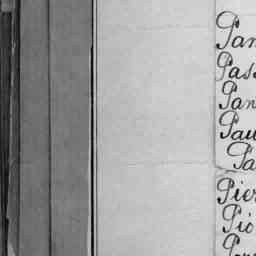 Pan
Pas
Pan
Pau
Pa
Pier
Pió